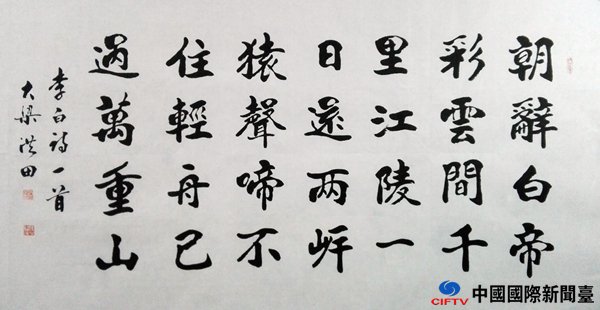 朝辭白帝
彩雲間千
里江陵一
日還两岸
猿聲啼不
住輕舟已
過萬重山
李白詩一首
大梁洪田
CIFTV 中國國際新聞臺